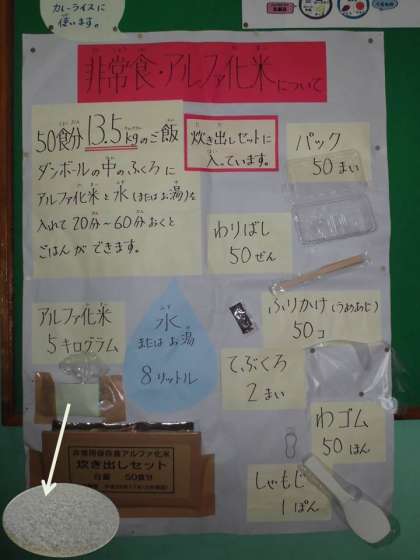 カレーライスに
使います。
非常食・アルファ化米について
50食分 13.5kgのご飯
ダンボールの中のふくろに
アルファ化米と水(またはお湯)を
入れて20分~60分おくと
ごはんができます。
炊き出しセットに
入っています。
パック
50まい
わりばし
50ぜん
アルファ化米
5キログラム
水
またはお湯
8リットル
ふりかけ(うめあじ)
50コ
てぶくろ
2まい
わゴム
50ほん
しゃもじ
1ぽん
非常用保存食アルファ化米
炊き出しセット
白飯 50食分